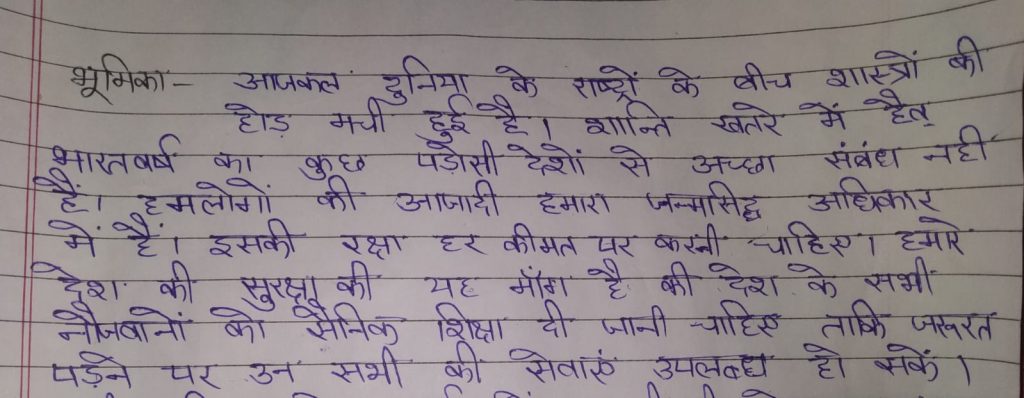 भूमिका - आजकल दुनिया के राष्ट्रों के बीच शास्त्रों की
होड़ मची हुई है। शान्ति खतरे में है
भारतवर्ष का कुछ पड़ोसी देशों से अच्छा संबंध नहीं
हैं। हमलोगों की आजादी हमारा जन्मसिद्ध अधिकार
में हैं। इसकी रक्षा हर कीमत पर करनी चाहिए। हमारे
देश की सुरक्षा की यह माँग है की देश के सभी
नौजवानों को सैनिक शिक्षा दी जानी चाहिए ताकि जरूरत
पड़ने पर उन सभी की सेवाएं उपलब्ध हो सकें।